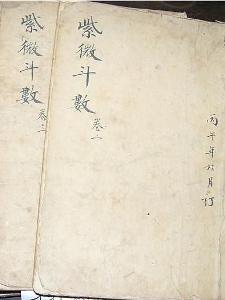 紫微斗數
卷二
丙午年六月订
紫微斗數
卷三